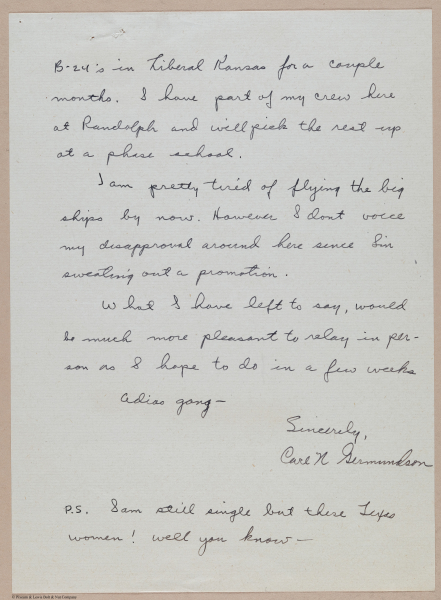 B-24's in Liberal Kansas for a couple
months. I have part of my crew here
at Randolph and will pick the rest up
at a phase school.
I am pretty tired of flying the big
ships by now. However I dont voice
my disapproval around here since I'm
sweating out a promotion.
What I have left to say, would
be much more pleasant to relay in per-
son as I hope to do in a few weeks
Adios gang -
Sincerely,
Carl N Germundson
P.S. I am still single but these Texas
women! well you know -